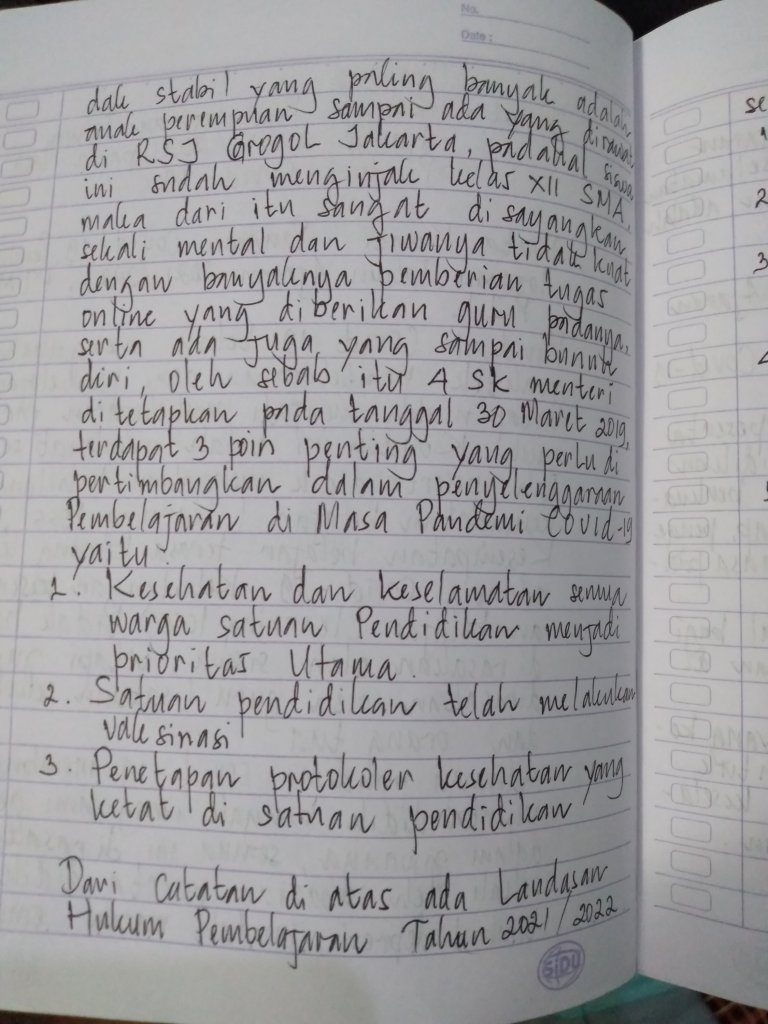 No.
Date :
dak stabil yang paling banyak adalah
anak perempuan sampai ada yang dirawat
di RSJ Grogol Jakarta, padahal siswa
ini sudah menginjak kelas XII SMA,
maka dari itu sangat di sayangkan
sekali mental dan jiwanya tidak kuat
dengan banyaknya pemberian tugas
online yang diberikan guru padanya,
serta ada juga yang sampai bunuh
diri, oleh sebab itu 4 SK menteri
di tetapkan pada tanggal 30 Maret 2019,
terdapat 3 poin penting yang perlu di
pertimbangkan dalam penyelenggaraan
Pembelajaran di Masa Pandemi Covid-19
yaitu :
1. Kesehatan dan keselamatan semua
warga satuan Pendidikan menjadi
prioritas Utama.
2. Satuan pendidikan telah melakukan
vaksinasi
3. Penetapan protokoler kesehatan yang
ketat di satuan pendidikan
Dari catatan di atas ada Landasan
Hukum Pembelajaran Tahun 2021/2022
SIDU
se
2
3